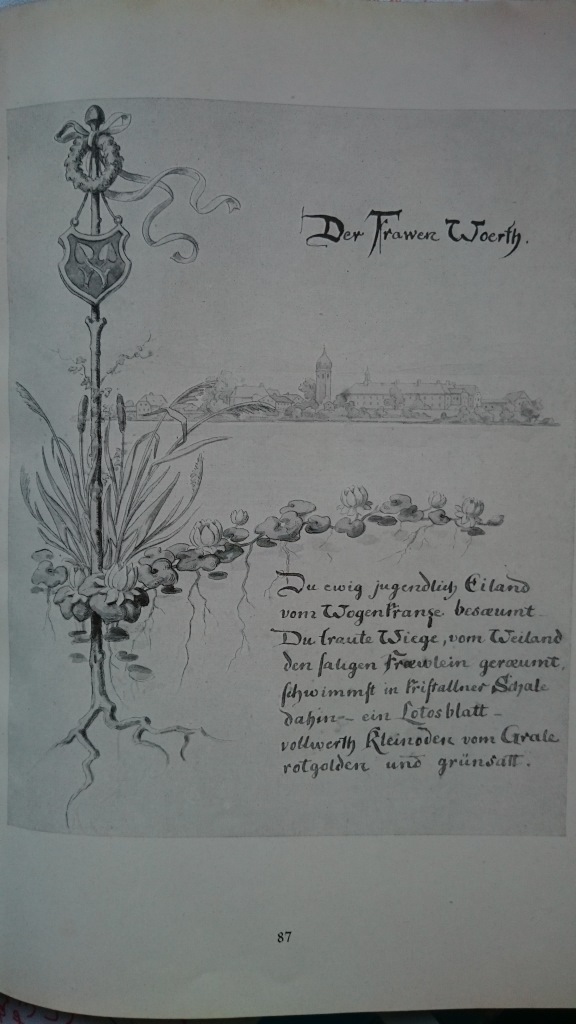 Der Frawen Woerth.
Du ewig jugendlich Eiland
vom Wogenkranze besæumt
Du traute Wiege, vom Weiland
den saligen Fræwlein geræumt,
schwimmst in kristallner Schale
dahin – ein Lotosblatt –
vollwerth Kleinoden vom Grale
rotgolden und grünsatt.
87